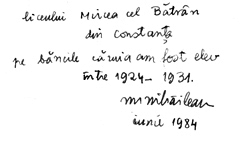 liceului Mircea cel Bătrân
din Constanța
pe băncile căruia am fost elev
între 1924–1931.
M Mihăileanu
iunie 1984